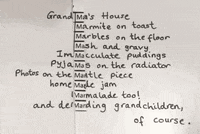 GrandMa's House
Marmite on toast
Marbles on the floor
Mash and gravy
ImMaculate puddings
PyjaMas on the radiator
Photos on the Mantle piece
home Made jam
Marmalade too!
and deManding grandchildren,
of course.